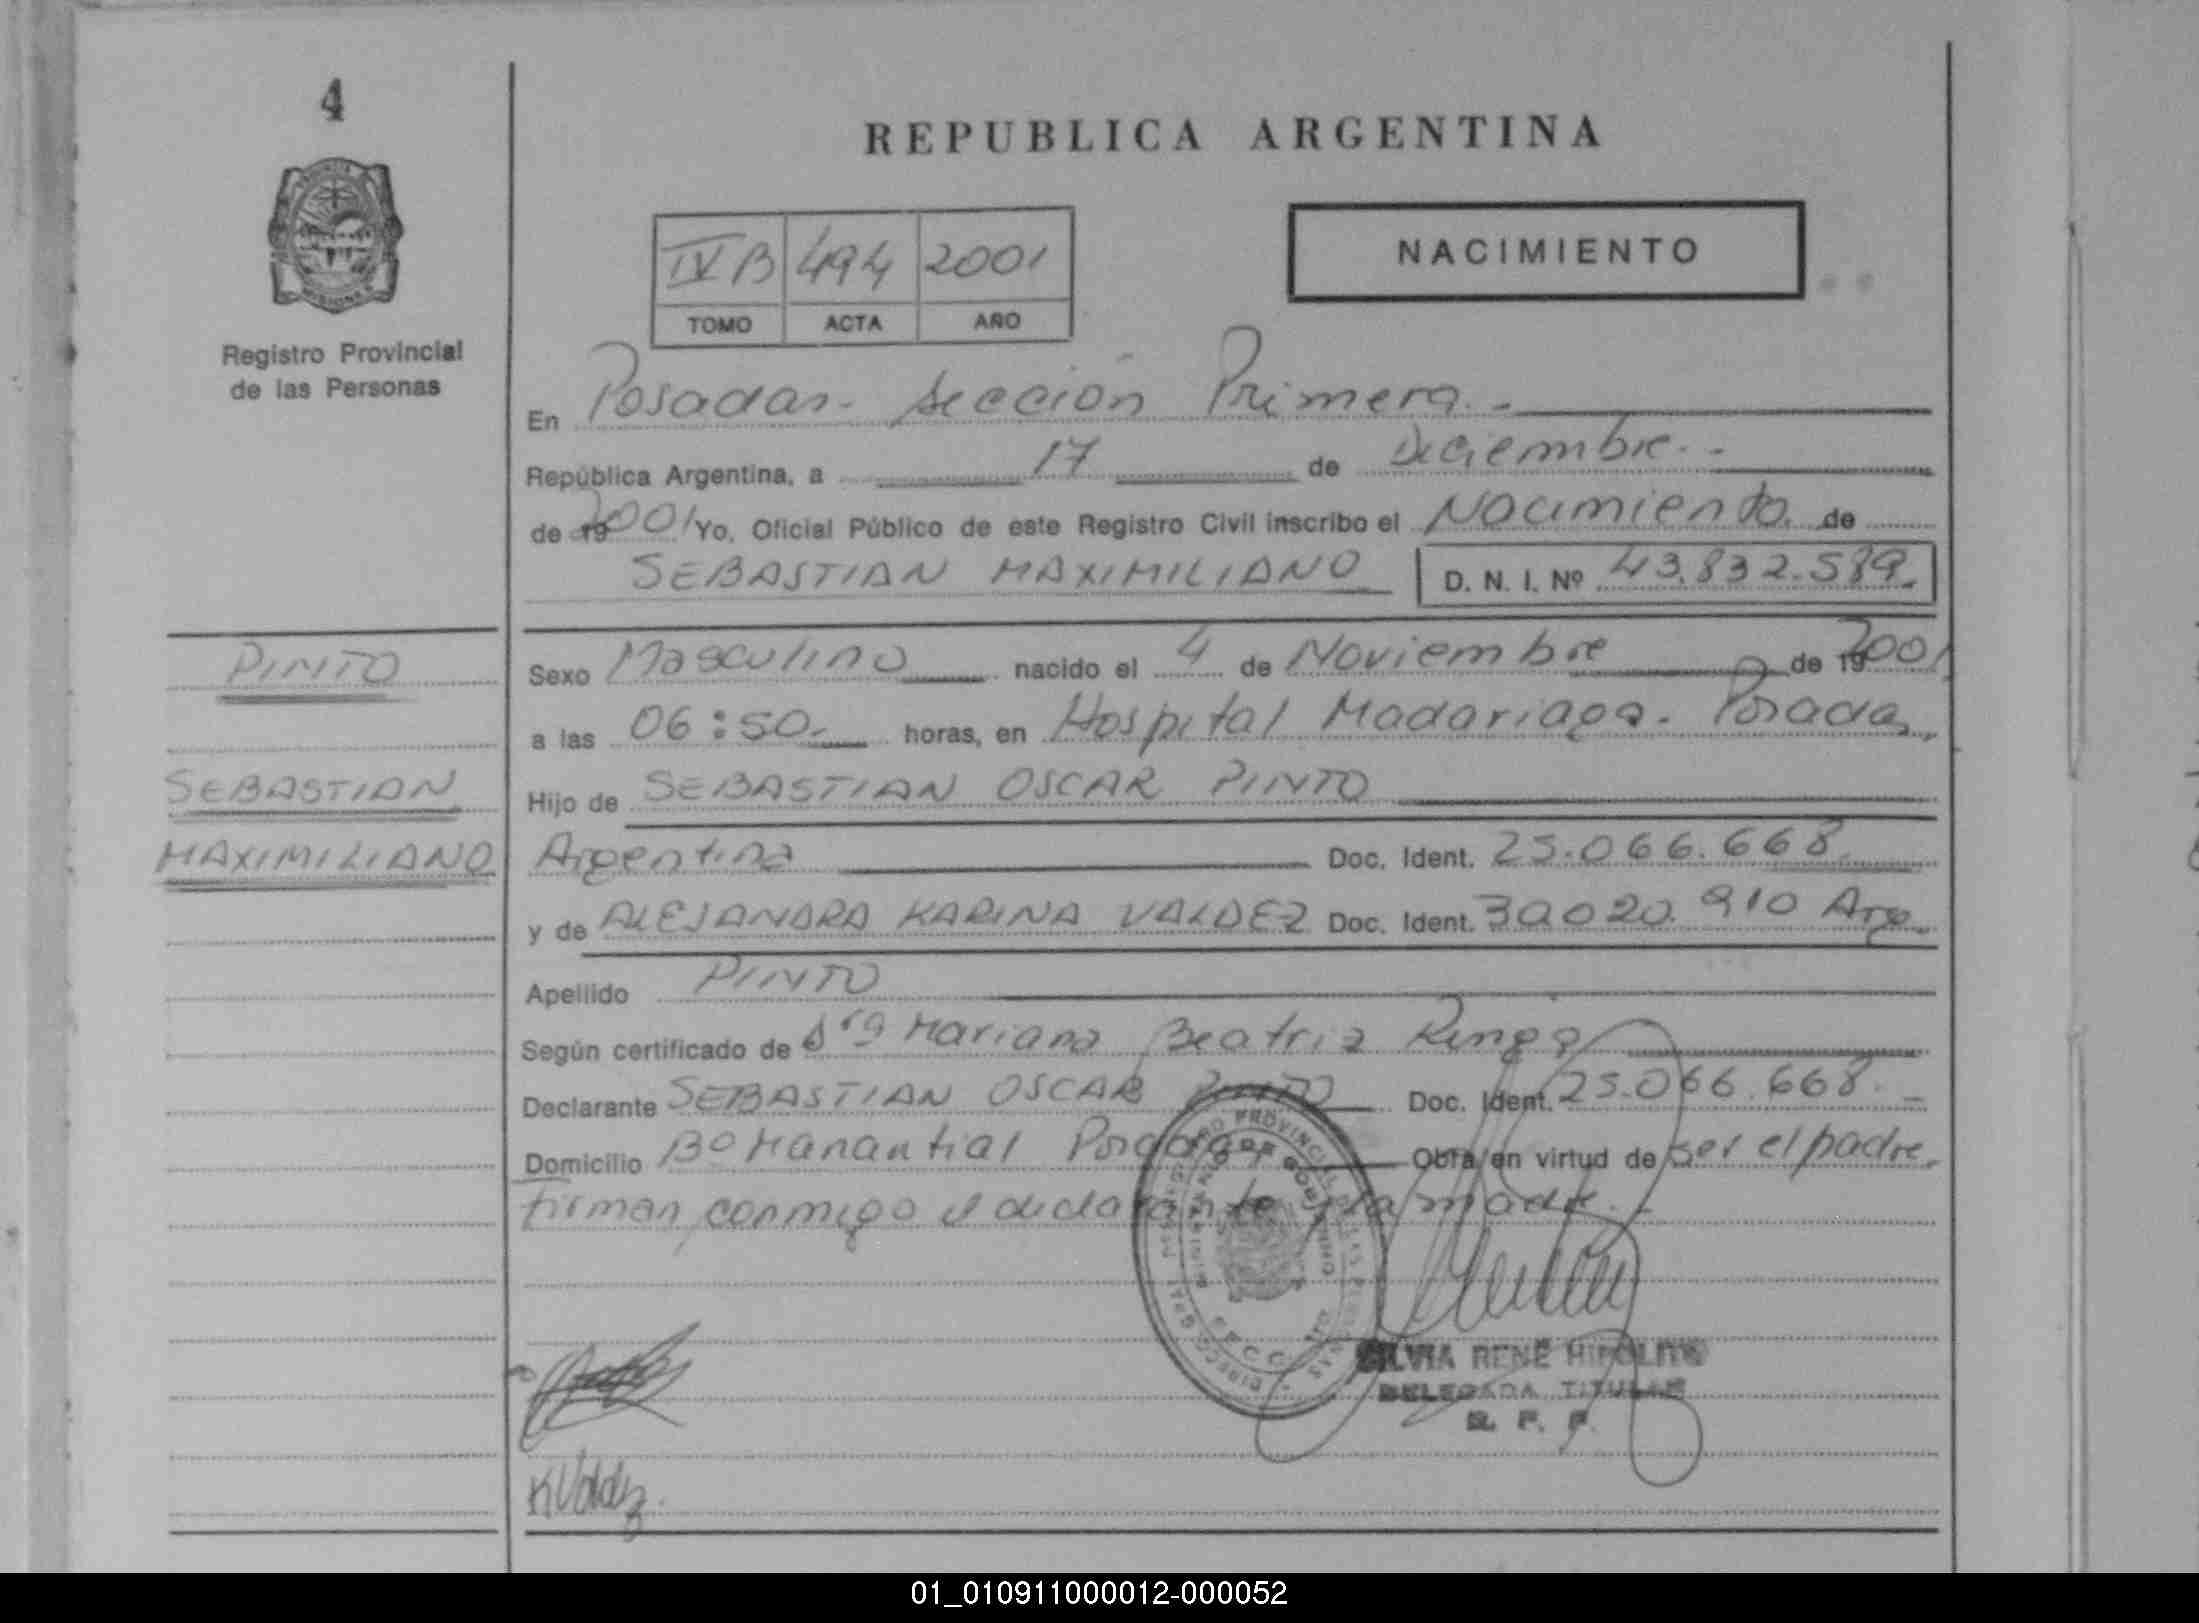 4
Registro Provincial
de las Personas
REPUBLICA ARGENTINA
IV B 494 2001
TOMO ACTA AÑO
NACIMIENTO
En Posadas - Sección Primera.-
República Argentina, a 17 de Diciembre.-
de 2001 Yo, Oficial Público de este Registro Civil inscribo el Nacimiento de
SEBASTIAN MAXIMILIANO D. N. I. Nº 43.832.589.
PINTO
SEBASTIAN
MAXIMILIANO
Sexo Masculino nacido el 4 de Noviembre de 2001
a las 06:50.- horas, en Hospital Madariaga - Posadas,
Hijo de SEBASTIAN OSCAR PINTO
Argentina Doc. Ident. 25.066.668
y de ALEJANDRA KARINA VALDEZ Doc. Ident. 30.020.910 Arg.
Apellido PINTO
Según certificado de Dra Mariana Beatriz
Declarante SEBASTIAN OSCAR PINTO Doc. Ident. 25.066.668.-
Domicilio Bº Manantial Posadas Obra en virtud de ser el padre.
firman conmigo el declarante y la madre.-
SILVIA RENÉ HIPOLITO
DELEGADA TITULAR
R. P. P.
K Valdez.
01_010911000012-000052